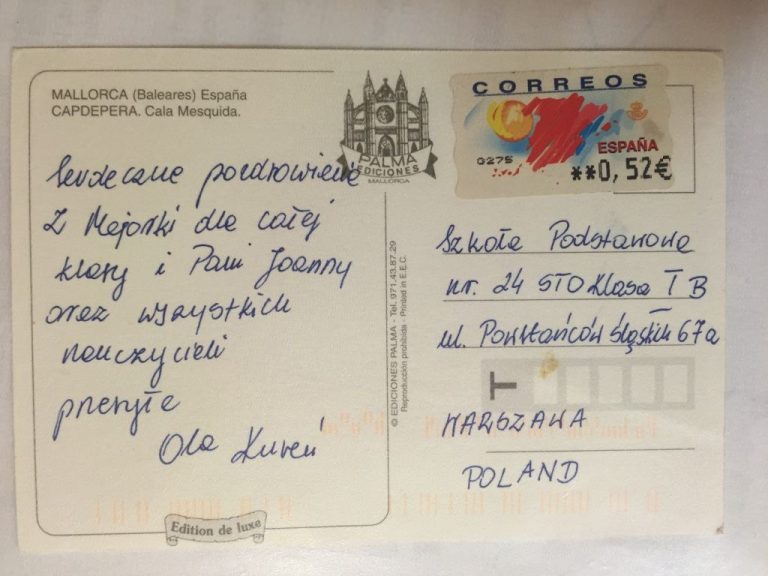 MALLORCA (Baleares) España
CAPDEPERA. Cala Mesquida.
Serdeczne pozdrowienie
Z Majorki dla całej
klasy i Pani Joanny
oraz wszystkich
nauczycieli
przesyła
Ola
PALMA
EDICIONES
MALLORCA
CORREOS
ESPAÑA
0275
**0,52€
© EDICIONES PALMA - Tel. 971.43.87.29
Reproducción prohibida - Printed in E.E.C.
Szkoła Podstawowa
nr. 24 STO Klasa I B
ul. Powstańców Śląskich 67a
T
WARSZAWA
POLAND
Edition de luxe